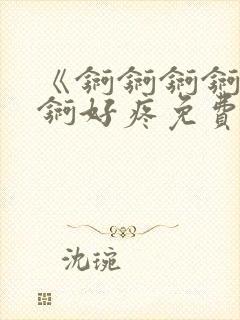 《锕锕锕锕
锕好疼免費
沈琬